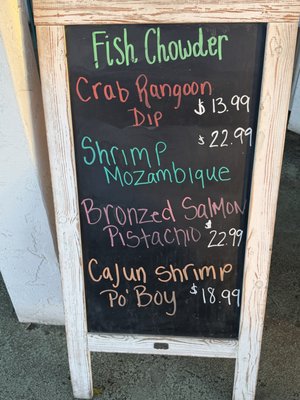 Fish Chowder
Crab Rangoon
Dip $13.99
$22.99
Shrimp
Mozambique
Bronzed Salmon
Pistachio $22.99
Cajun Shrimp
Po' Boy $18.99